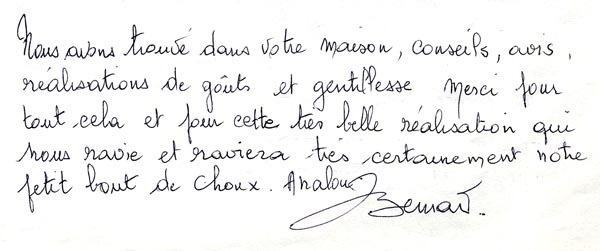 Nous avons trouvé dans votre maison, conseils, avis,
réalisations de goûts et gentillesse Merci pour
tout cela et pour cette très belle réalisation qui
nous ravie et raviera très certainement notre
petit bout de choux.